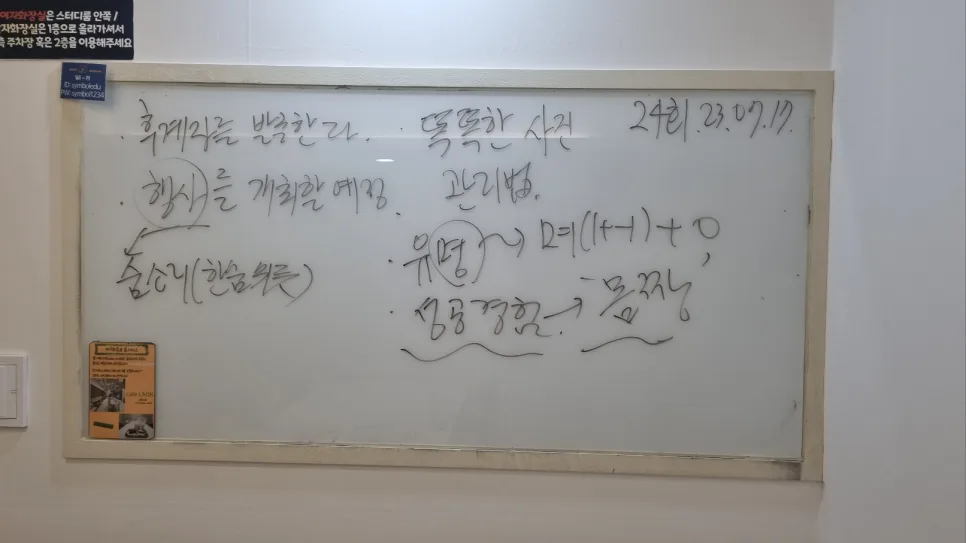 여자화장실은 스터디룸 안쪽 /
자화장실은 1층으로 올라가셔서
측 주차장 혹은 2층을 이용해주세요
ID: symboledu
PW: symbol1234
24회. 23.07.17.
· 후계자를 발굴한다.
· 행사를 개최할 예정.
숨소리(한숨위릇)
· 똑똑한 사진
관리법.
· 유명 → 며(1+-1)+ㅇ,
· 성공경험 → 몸짱